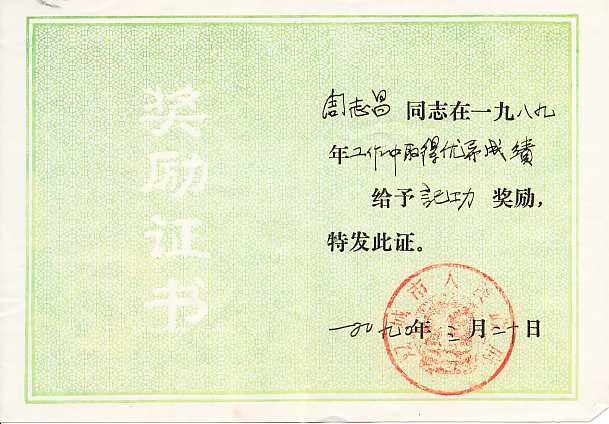 奖励证书
周志昌 同志在一九八九
年工作中取得优异成绩
给予 記功 奖励，
特发此证。
一九九〇年 三月二十日